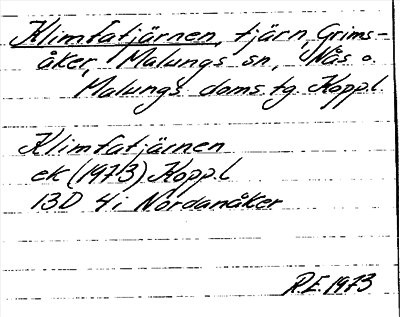 Klimtatjärnen, tjärn, Grims-
åker, Malungs sn, Nås o.
Malungs doms.tg. Koppl.
Klimtatjärnen
ek (1973) Koppl
13D 4i Nordanåker
R.E. 1973